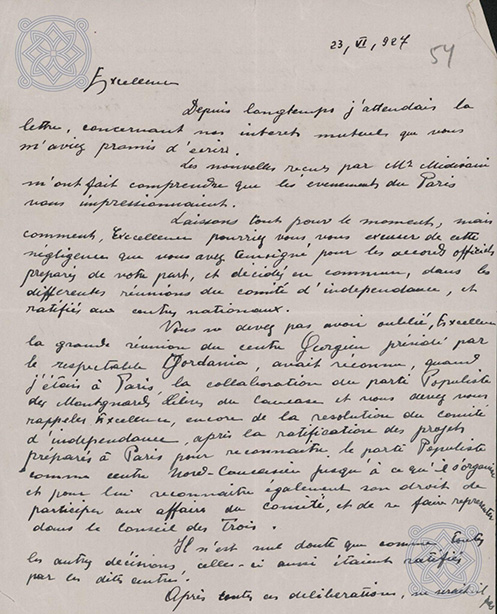 23, VI, 927
54
Excellence
Depuis longtemps j'attendais la
lettre, concernant nos interets mutuels que vous
m'aviez promis d'ecrire.
Les nouvelles reçues par Mr
m'ont fait comprendre que les evenements du Paris
vous impressionnaient.
Laissons tout pour le moment, mais
comment, Excellence pourriez vous vous excuser de cette
négligence que vous avez temoigné pour les accords officiels
préparés de votre part, et decidés en commun, dans les
differentes réunions du comité d'independance, et
ratifiés aux centres nationaux.
Vous ne devez pas avoir oublié, Excellence
la grande réunion du centre Georgien présidé par
le respectable Jordania, avait réconnu, quand
j'étais à Paris, la collaboration du parti Populiste
des Montagnards libres du Caucase et vous devez vous
rappeler Excellence, encore de la resolution du comité
d'independance, après la ratification des projets
préparés à Paris pour reconnaitre le parti Populiste
comme centre Nord-Caucasien jusqu'à ce qu'il s'organise
et pour lui reconnaître également son droit de
participer aux affaires du Comité, et de se faire representer
dans le Conseil des Trois.
Il n'est nul doute que comme toutes
les autres décisions celles-ci aussi étaient ratifiés
par ces dits centre.
Après toutes ces deliberations, ne serait-il